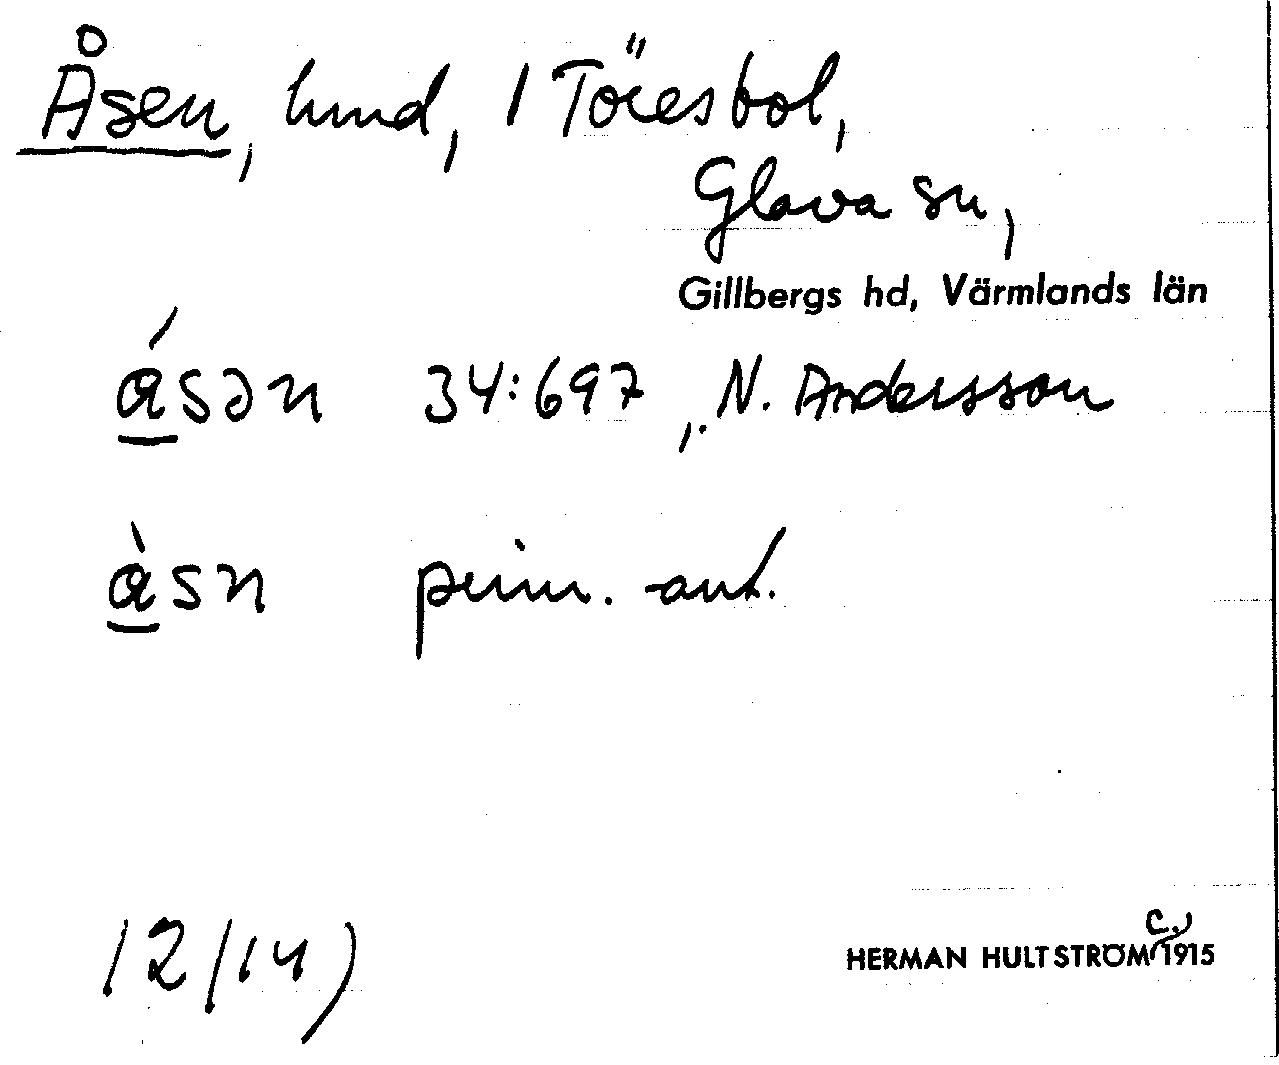 Åsen, lund, 1 Töresbol,
Glava sn,
Gillbergs hd, Värmlands län
ásən 34:697, N. Andersson
àsn prim. ant.
12/14)
HERMAN HULTSTRÖM (c.) 1915